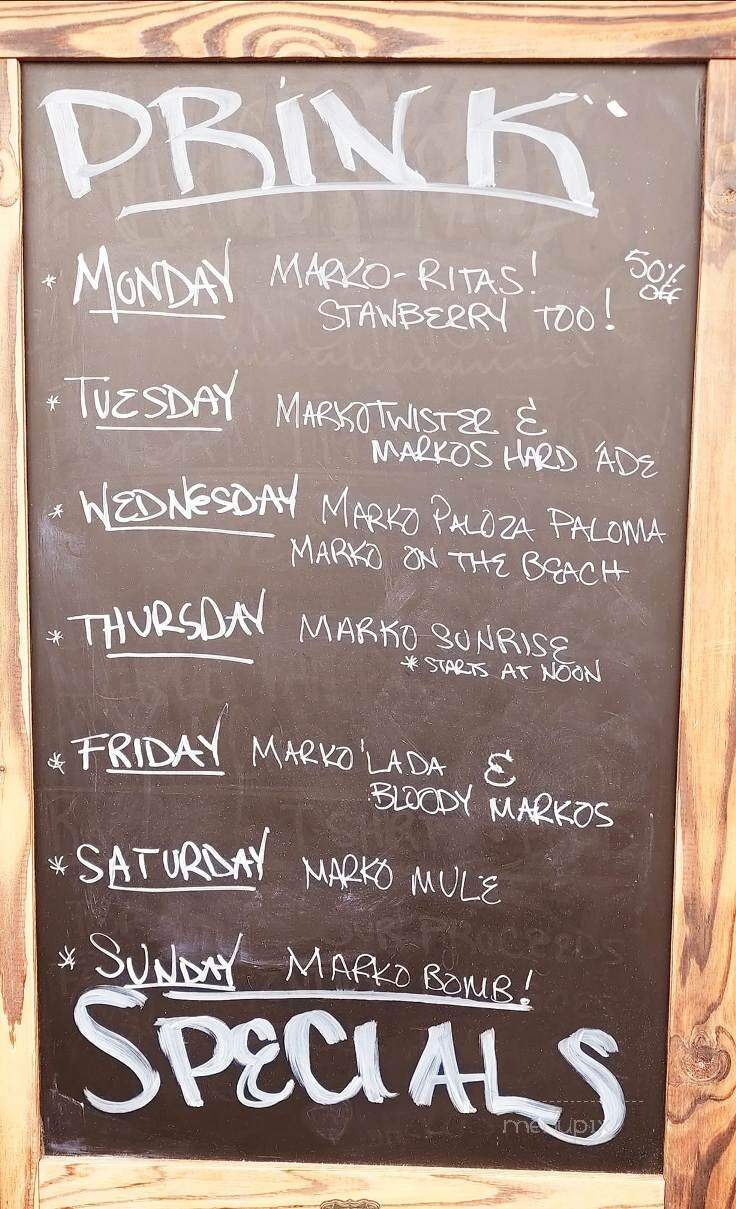 DRINK
* MONDAY MARKO-RITAS! 50% OFF
STAWBERRY TOO!
* TUESDAY MARKOTWISTER &
MARKOS HARD 'ADE
* WEDNESDAY MARKO PALOZA PALOMA
MARKO ON THE BEACH
* THURSDAY MARKO SUNRISE
* STARTS AT NOON
* FRIDAY MARKO'LADA &
BLOODY MARKOS
* SATURDAY MARKO MULE
* SUNDAY MARKO BOMB!
SPECIALS
menupix